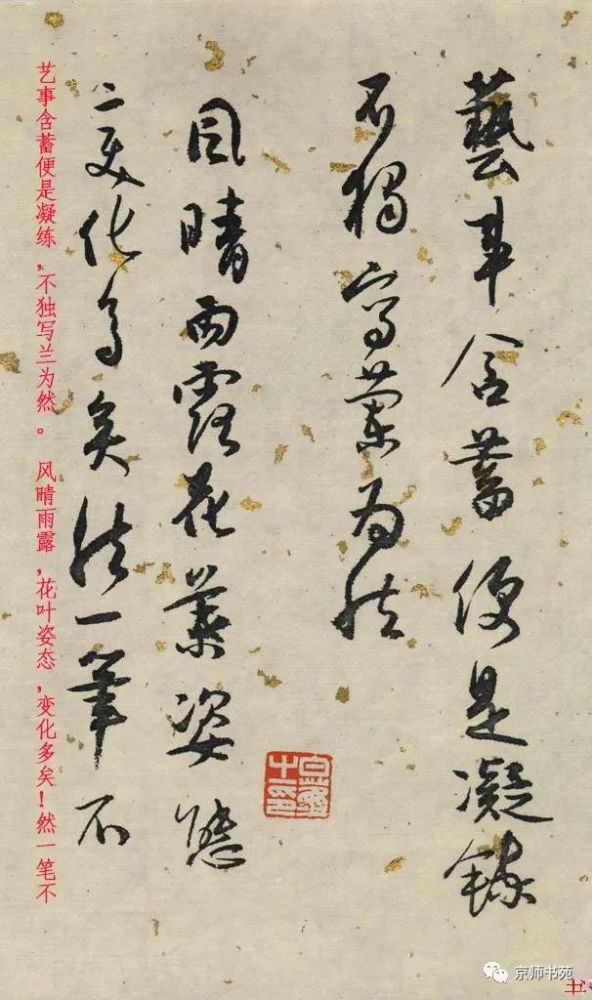 藝事含蓄便是凝鍊
不獨寫蘭為然
風晴雨露花葉姿態
變化多矣然一筆不
艺事含蓄便是凝练，不独写兰为然。 风晴雨露，花叶姿态，变化多矣！然一笔不
京师书苑